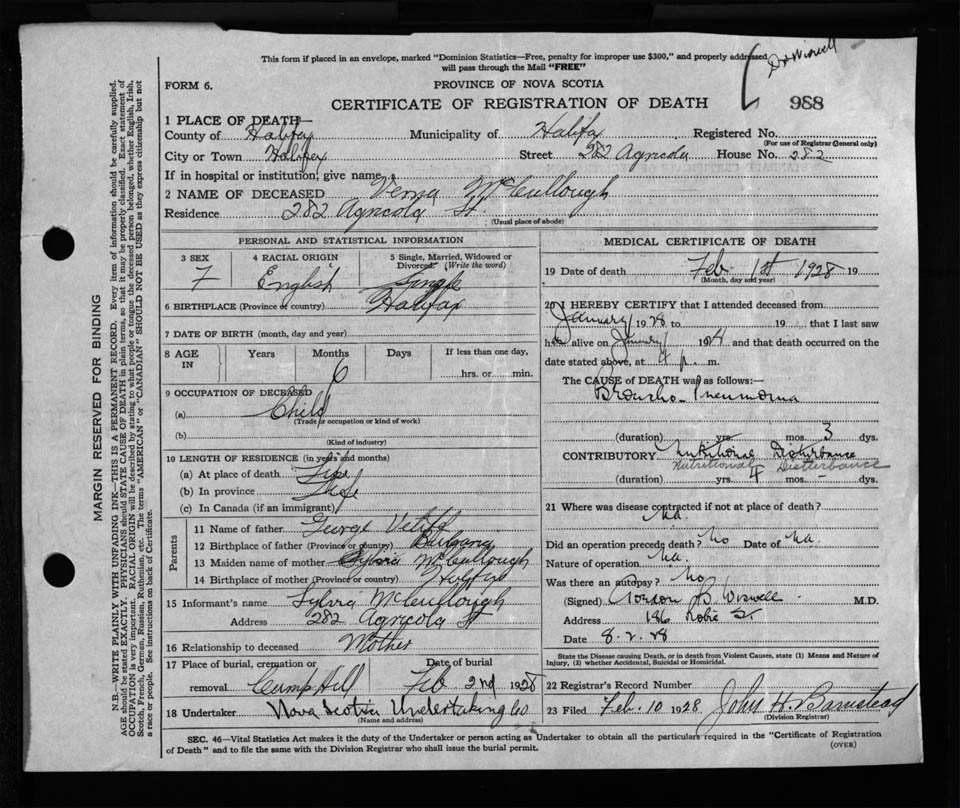 This form if placed in an envelope, marked "Dominion Statistics—Free, penalty for improper use $300," and properly addressed
will pass through the Mail "FREE"
Dr Wiswell
FORM 6.
PROVINCE OF NOVA SCOTIA
CERTIFICATE OF REGISTRATION OF DEATH
988
1 PLACE OF DEATH—
County of Halifax Municipality of Halifax Registered No.
(For use of Registrar General only)
City or Town Halifax Street 282 Agricola House No. 282
If in hospital or institution, give name
2 NAME OF DECEASED Verna McCullough
Residence 282 Agricola St.
(Usual place of abode)
PERSONAL AND STATISTICAL INFORMATION
3 SEX 4 RACIAL ORIGIN 5 Single, Married, Widowed or Divorced (Write the word)
F English Single
6 BIRTHPLACE (Province or country) Halifax
7 DATE OF BIRTH (month, day and year)
8 AGE IN Years Months Days If less than one day,
6 hrs. or min.
9 OCCUPATION OF DECEASED
(a) Child
(Trade or occupation or kind of work)
(b)
(Kind of industry)
10 LENGTH OF RESIDENCE (in years and months)
(a) At place of death Life
(b) In province Life
(c) In Canada (if an immigrant)
Parents
11 Name of father George
12 Birthplace of father (Province or country)
13 Maiden name of mother Sylvia McCullough
14 Birthplace of mother (Province or country) Halifax
15 Informant's name Sylvia McCullough
Address 282 Agricola St
16 Relationship to deceased Mother
17 Place of burial, cremation or removal Camp Hill Date of burial Feb 2nd 1928
18 Undertaker Nova Scotia Undertaking Co
(Name and address)
MEDICAL CERTIFICATE OF DEATH
19 Date of death Feb. 1st 1928 19
(Month, day and year)
20 I HEREBY CERTIFY that I attended deceased from
January 1928 to 19 that I last saw
her alive on January 1928 and that death occurred on the
date stated above, at 4 p. m.
The CAUSE OF DEATH was as follows:—
Broncho-Pneumonia
(duration) yrs. mos. 3 dys.
CONTRIBUTORY Nutritional Disturbance
Nutritional Disturbance
(duration) yrs. 4 mos. – dys.
21 Where was disease contracted if not at place of death?
na.
Did an operation precede death? No Date of na.
Nature of operation na.
Was there an autopsy? No
(Signed) Gordon B. Wiswell M.D.
Address 186 Robie St.
Date 8.2.28
State the Disease causing Death, or in death from Violent Causes, state (1) Means and Nature of
Injury, (2) whether Accidental, Suicidal or Homicidal.
22 Registrar's Record Number
23 Filed Feb. 10 1928 John H. Barnstead
(Division Registrar)
SEC. 46—Vital Statistics Act makes it the duty of the Undertaker or person acting as Undertaker to obtain all the particulars required in the "Certificate of Registration
of Death" and to file the same with the Division Registrar who shall issue the burial permit.
(OVER)
MARGIN RESERVED FOR BINDING
N.B.—WRITE PLAINLY WITH UNFADING INK—THIS IS A PERMANENT RECORD. Every item of information should be carefully supplied.
AGE should be stated EXACTLY. PHYSICIANS should STATE CAUSE OF DEATH in plain terms, so that it may be properly classified. Exact statement of
OCCUPATION is very important. RACIAL ORIGIN will be described by stating to what people or tongue the deceased person belonged, whether English, Irish,
Scotch, French, German, Russian, Ruthenian, etc. The terms "AMERICAN" or "CANADIAN" SHOULD NOT BE USED as they express citizenship but not
a race or people. See instructions on back of Certificate.